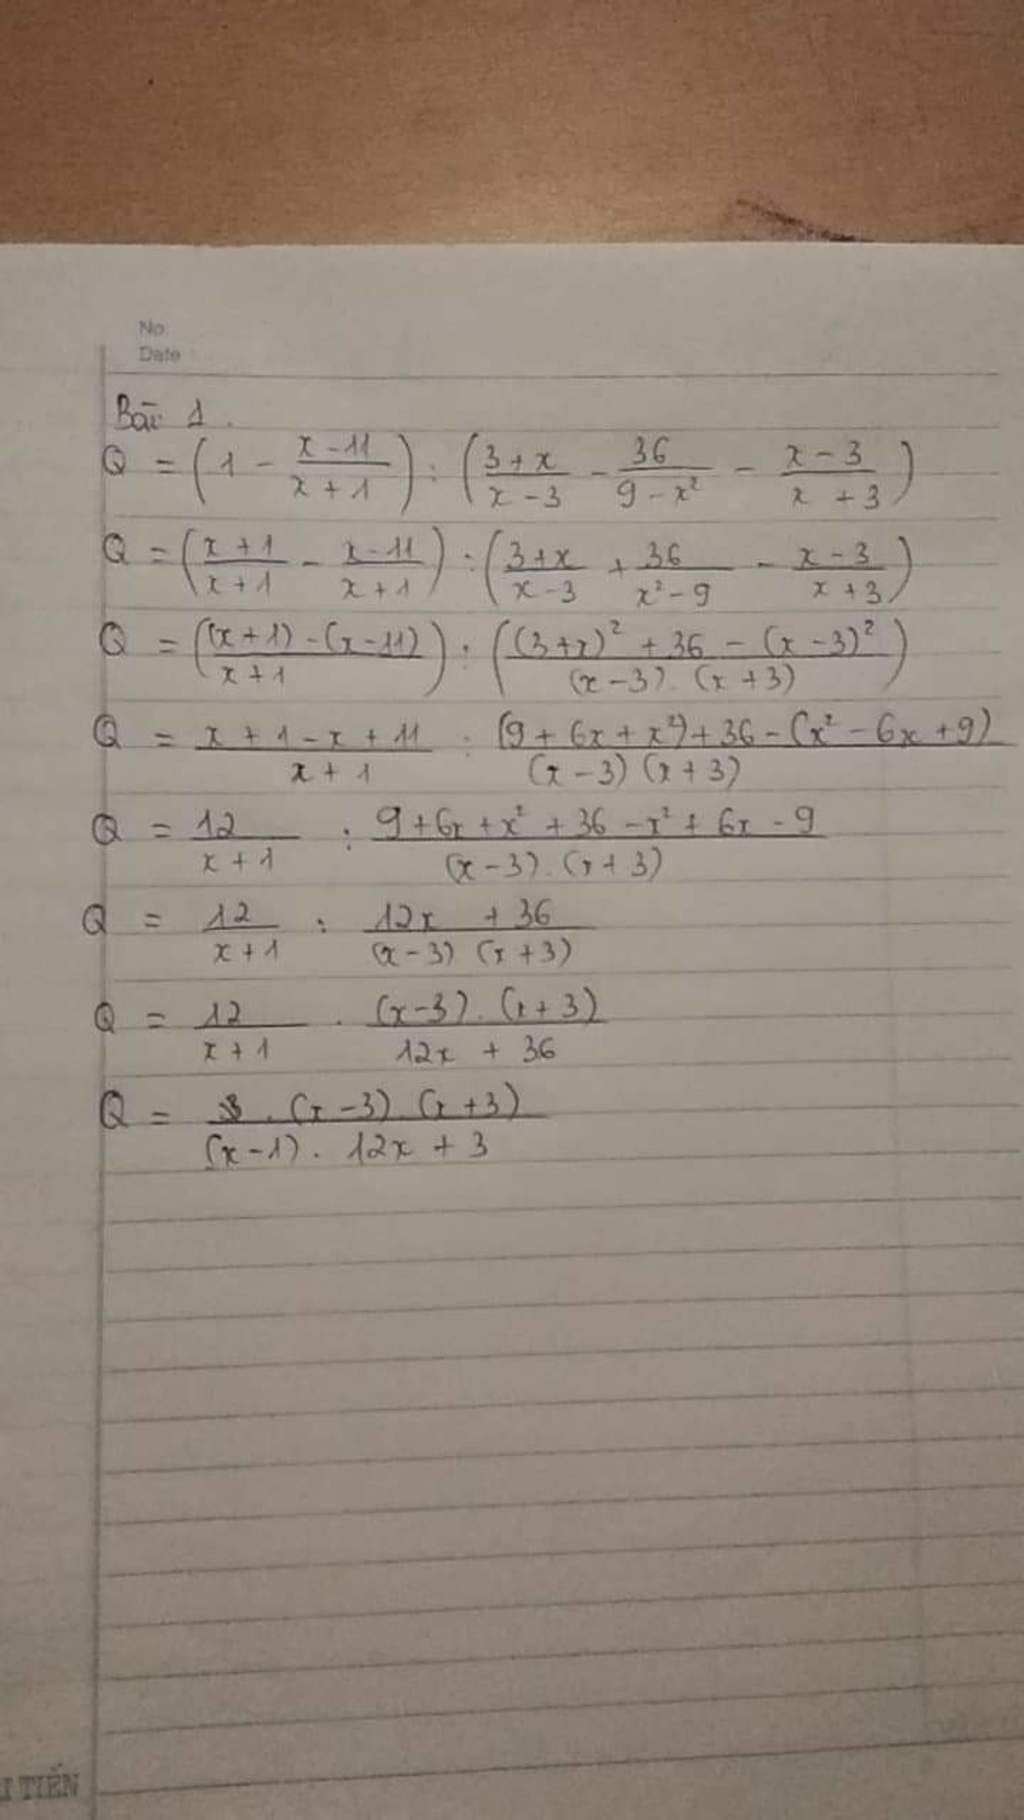 No
Date
Bài 1.
Q = (1 - (x-11)/(x+1)) : ((3+x)/(x-3) - 36/(9-x²) - (x-3)/(x+3))
Q = ((x+1)/(x+1) - (x-11)/(x+1)) : ((3+x)/(x-3) + 36/(x²-9) - (x-3)/(x+3))
Q = (((x+1)-(x-11))/(x+1)) : (((3+x)² + 36 - (x-3)²)/((x-3).(x+3)))
Q = (x+1-x+11)/(x+1) : ((9+6x+x²)+36-(x²-6x+9))/((x-3)(x+3))
Q = 12/(x+1) : (9+6x+x²+36-x²+6x-9)/((x-3).(x+3))
Q = 12/(x+1) : (12x+36)/((x-3)(x+3))
Q = 12/(x+1) . ((x-3).(x+3))/(12x+36)
Q = (3.(x-3).(x+3))/((x-1).12x+3)
TIẾN